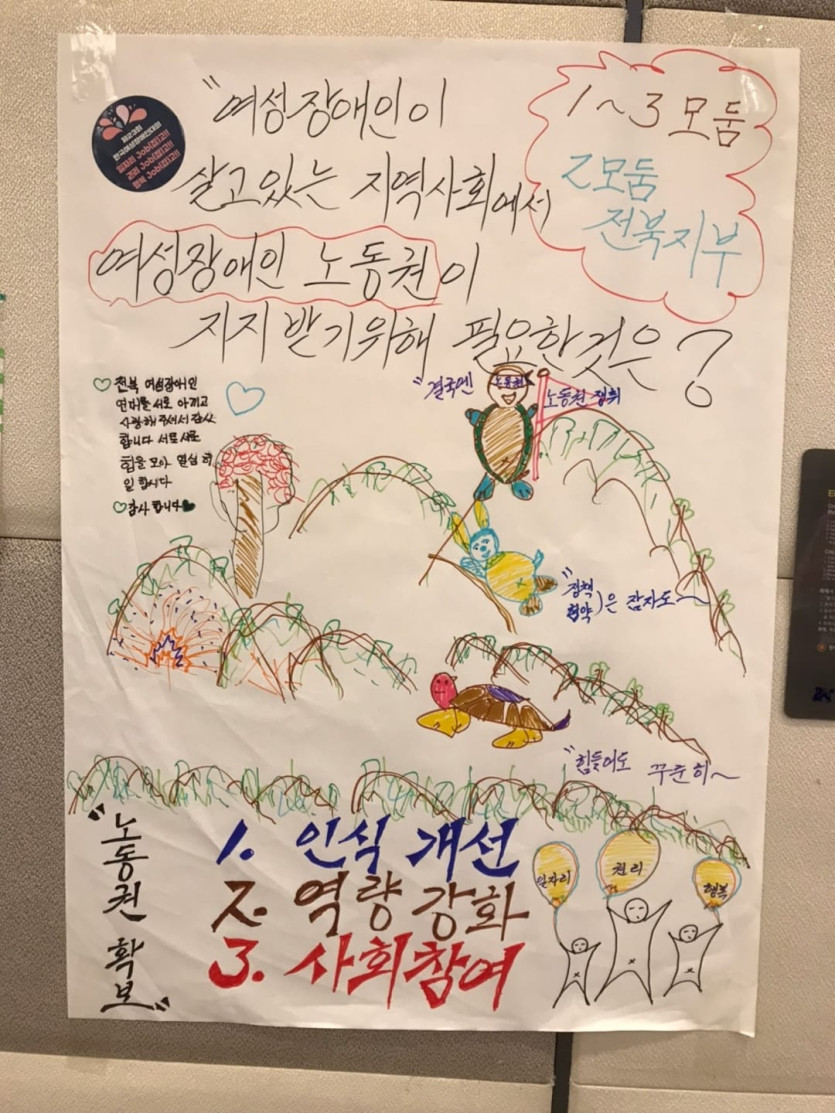 "여성장애인이
살고있는 지역사회에서
여성장애인 노동권이
지지 받기위해 필요한것은?
1~3 모둠
2모둠
전북지부
제23회
한국여성장애인대회
일자리 Job(잡)고!!
권리 Job(잡)고!!
행복 Job(잡)고!!
전북 여성장애인
연대를 서로 아끼고
사랑해 주셔서 감사
합니다 서로서로
힘을 모아 열심히
일 합시다
감사 합니다
"결국엔
노동권
노동권 쟁취
"정책
협약)은 잠자도~
"힘들어도 꾸준히~
"노동권 확보"
1. 인식 개선
2. 역량 강화
3. 사회참여
일자리
권리
행복